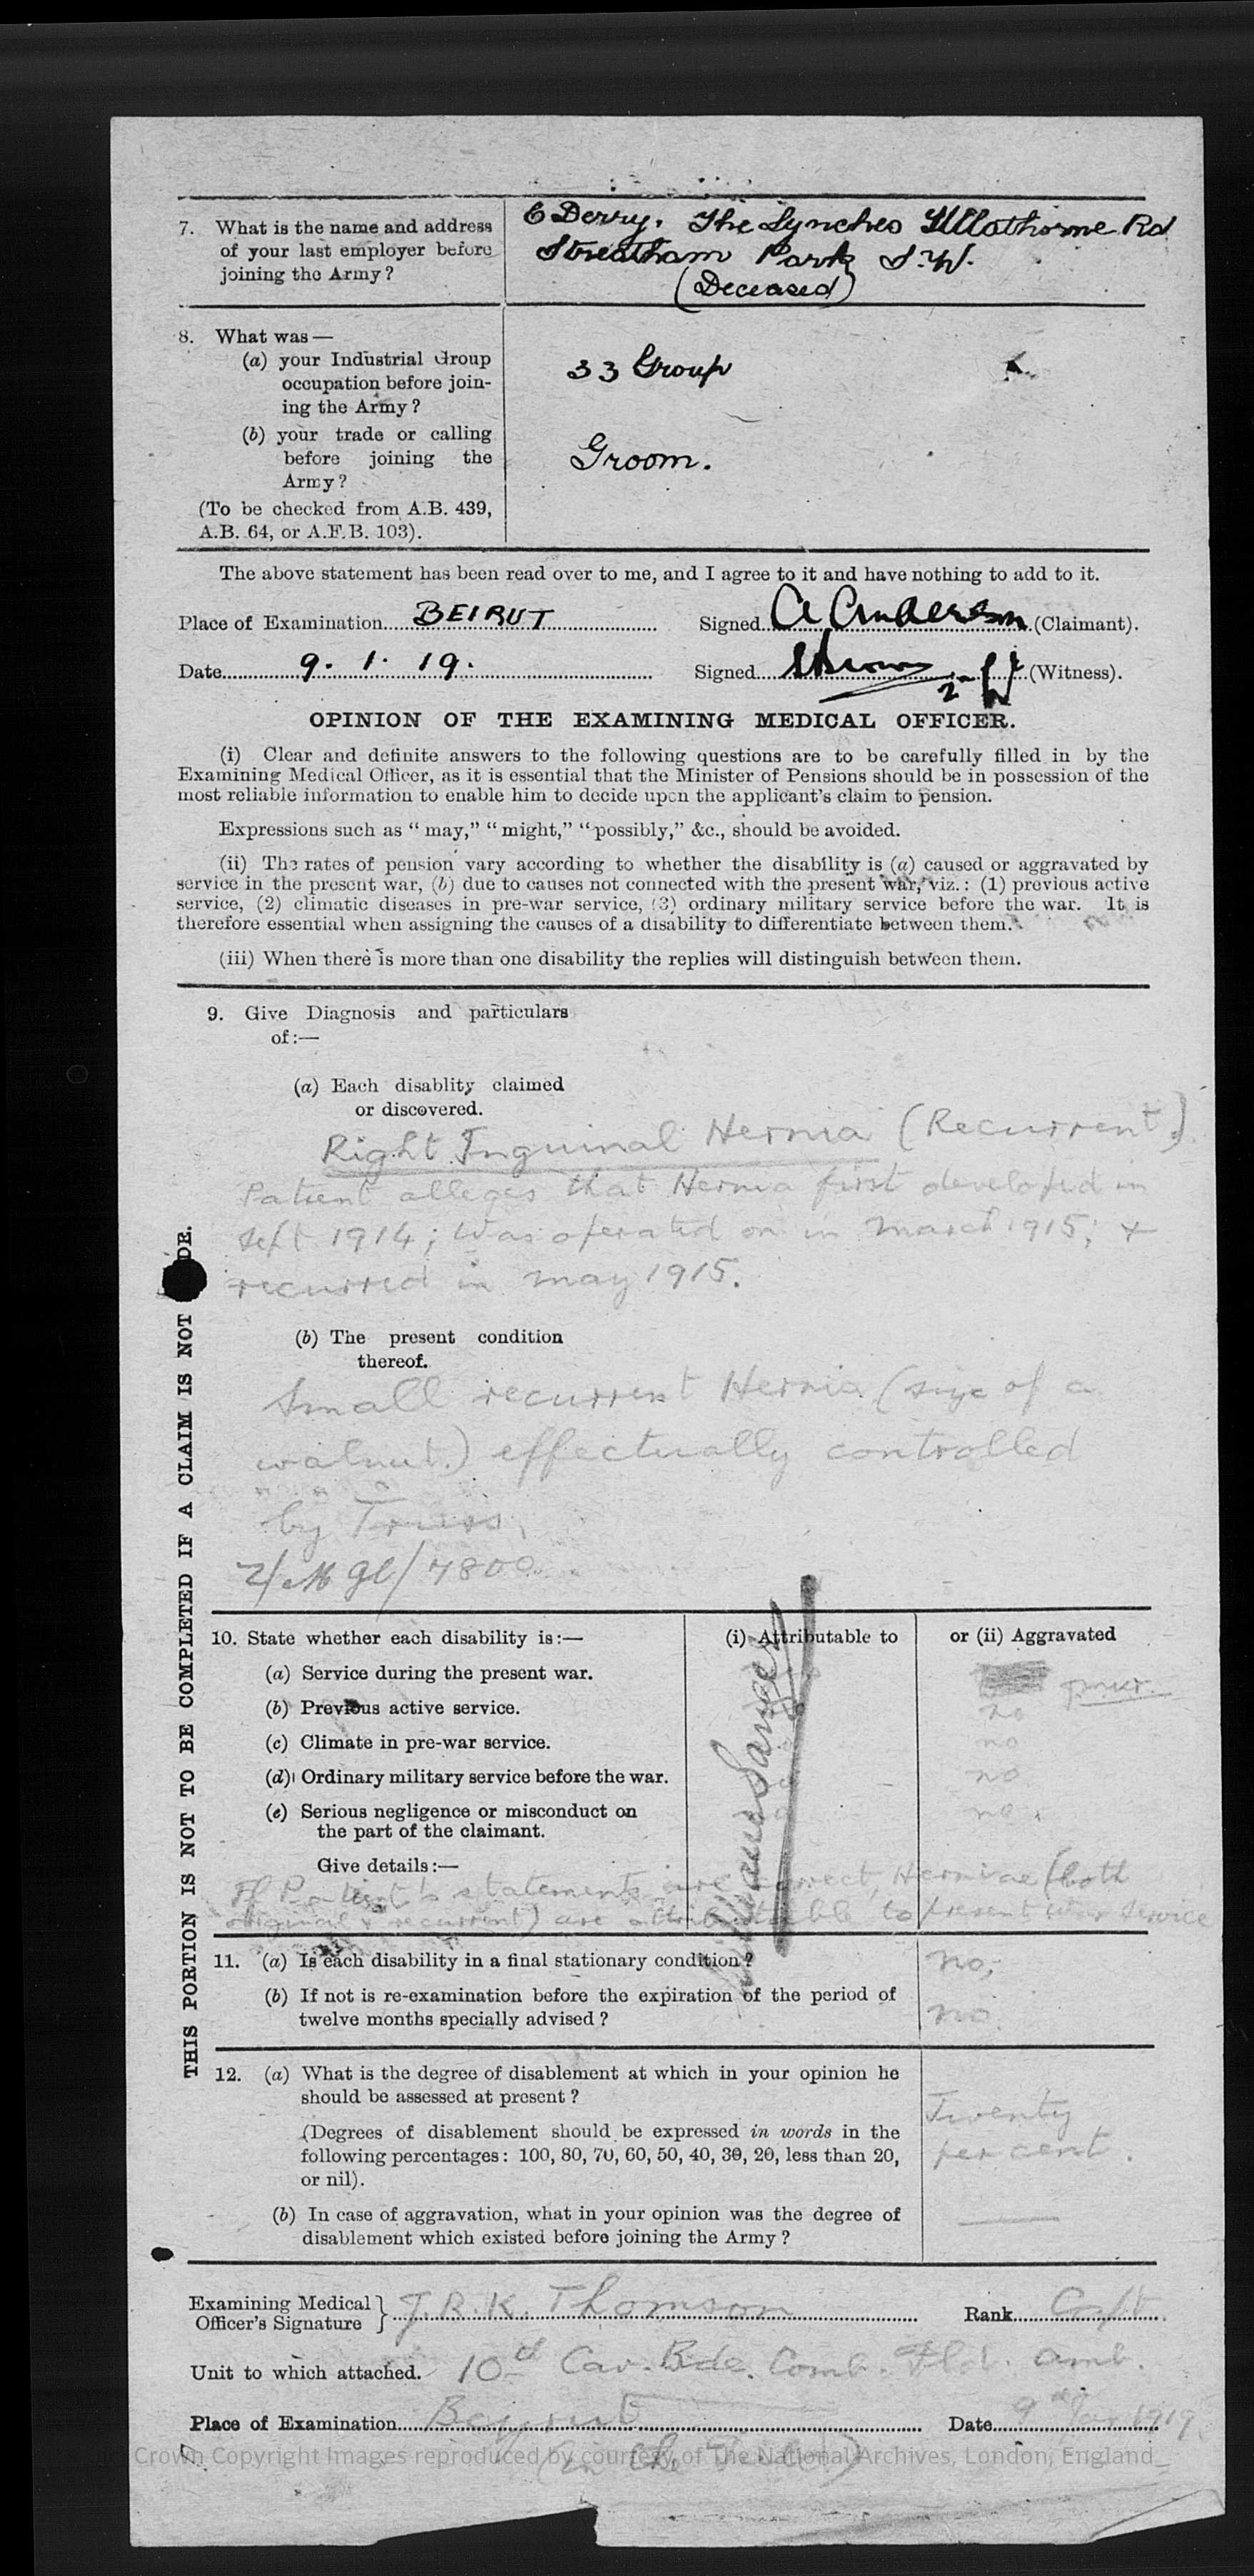 7. What is the name and address
of your last employer before
joining the Army?
E Derry. The Lynches Ullathorne Rd
Streatham Park S.W.
(Deceased)
8. What was —
(a) your Industrial Group
occupation before join-
ing the Army?
33 Group
(b) your trade or calling
before joining the
Army?
Groom.
(To be checked from A.B. 439,
A.B. 64, or A.F.B. 103).
The above statement has been read over to me, and I agree to it and have nothing to add to it.
Place of Examination BEIRUT Signed A Anderson (Claimant).
Date 9. 1. 19. Signed (Witness).
OPINION OF THE EXAMINING MEDICAL OFFICER.
(i) Clear and definite answers to the following questions are to be carefully filled in by the
Examining Medical Officer, as it is essential that the Minister of Pensions should be in possession of the
most reliable information to enable him to decide upon the applicant's claim to pension.
Expressions such as "may," "might," "possibly," &c., should be avoided.
(ii) The rates of pension vary according to whether the disability is (a) caused or aggravated by
service in the present war, (b) due to causes not connected with the present war, viz.: (1) previous active
service, (2) climatic diseases in pre-war service, (3) ordinary military service before the war. It is
therefore essential when assigning the causes of a disability to differentiate between them.
(iii) When there is more than one disability the replies will distinguish between them.
9. Give Diagnosis and particulars
of:—
(a) Each disablity claimed
or discovered.
Right Inguinal Hernia (Recurrent)
Patient alleges that Hernia first developed in
Sept 1914; Was operated on in March 1915; &
recurred in May 1915.
(b) The present condition
thereof.
Small recurrent Hernia (size of a
walnut.) effectually controlled
by Truss.
10. State whether each disability is:— (i) Attributable to or (ii) Aggravated
(a) Service during the present war.
(b) Previous active service. no
(c) Climate in pre-war service. no
(d) Ordinary military service before the war. no
(e) Serious negligence or misconduct on no
the part of the claimant.
Give details:—
If Patient's statements are correct, Herniae (both
original & recurrent) are attributable to present war service
11. (a) Is each disability in a final stationary condition? no.
(b) If not is re-examination before the expiration of the period of
twelve months specially advised? no.
12. (a) What is the degree of disablement at which in your opinion he
should be assessed at present?
(Degrees of disablement should be expressed in words in the
following percentages: 100, 80, 70, 60, 50, 40, 30, 20, less than 20,
or nil).
Twenty
per cent.
(b) In case of aggravation, what in your opinion was the degree of
disablement which existed before joining the Army?
Examining Medical
Officer's Signature } J.R.K. Thomson Rank Capt.
Unit to which attached. 10th Cav. Bde. Comb. Fld. Amb.
Place of Examination Beyrut Date 9th Jan 1919
(in the Field)
THIS PORTION IS NOT TO BE COMPLETED IF A CLAIM IS NOT DE.
Crown Copyright Images reproduced by courtesy of The National Archives, London, England